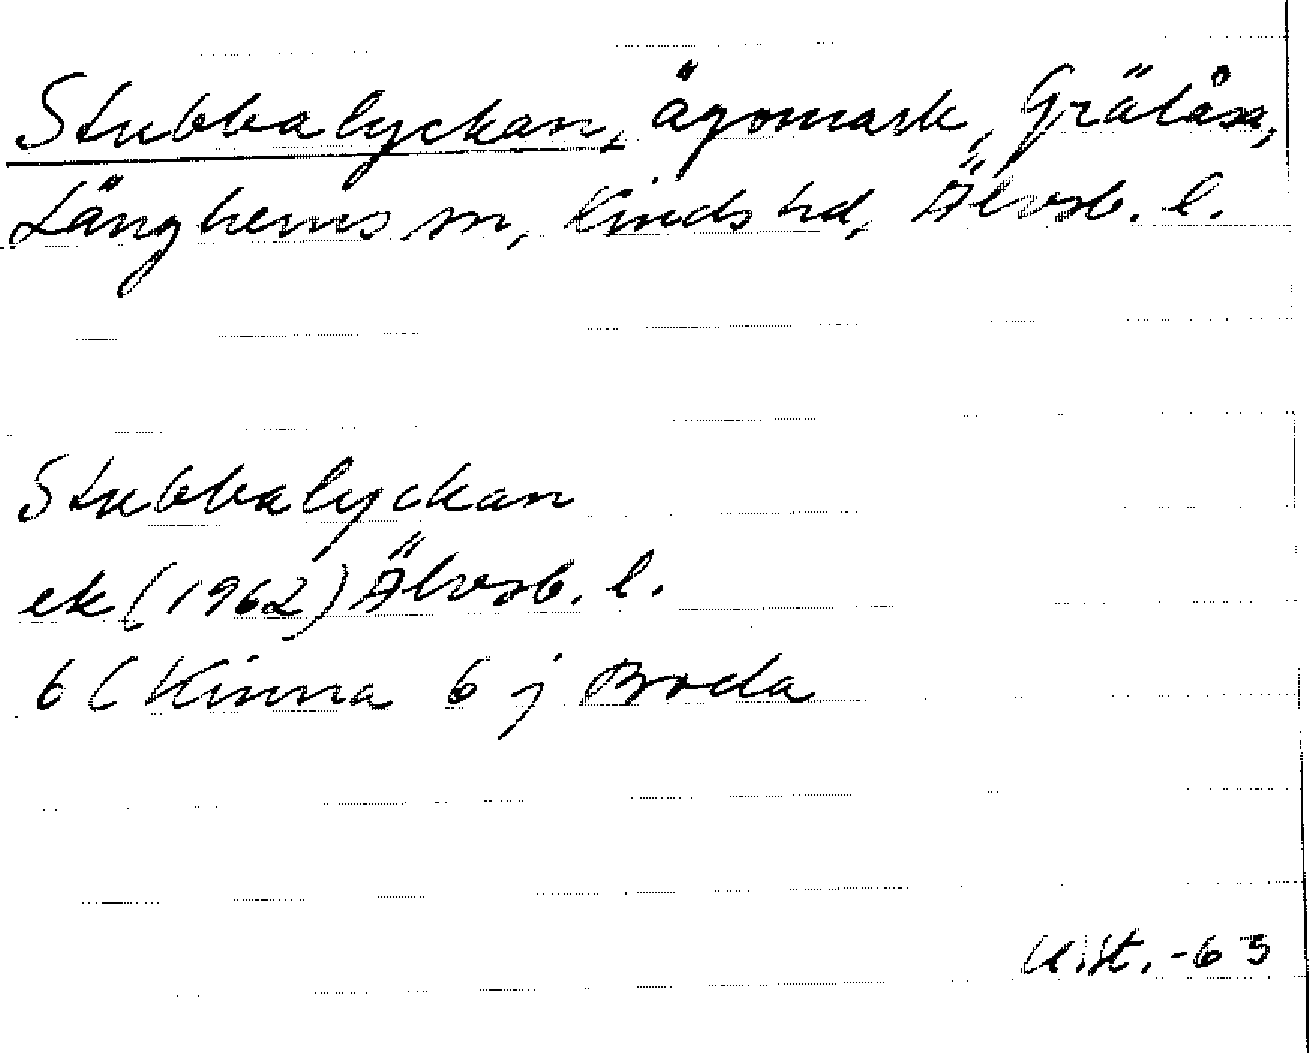 Stubbalyckan, ägomark, Grälåsa,
Länghems sn, Kinds hd, Älvsb. l.
Stubbalyckan
ek (1962) Älvsb. l.
6 C Kinna 6 j Broda
U.St. -63